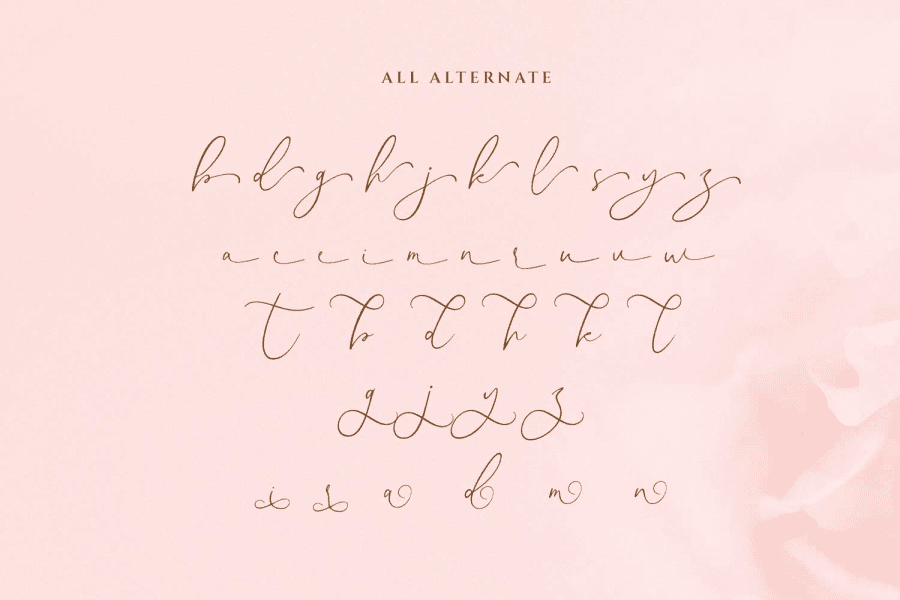 ALL ALTERNATE
b d g h j k l s y z
a c e i m n r u v w
t b d h k l
g j y z
i r a d m n